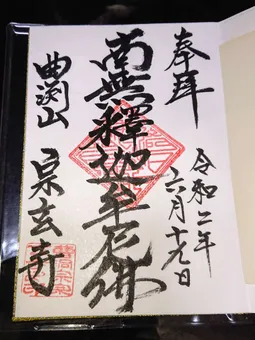 奉拝
令和二年
六月十九日
南無釋迦牟尼佛
曲渕山
泉玄寺